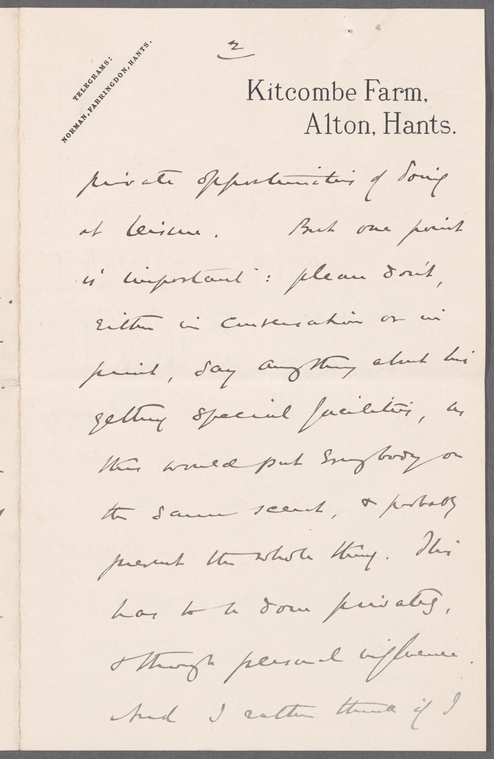 2
TELEGRAMS:
NORMAN, FARRINGDON, HANTS.
Kitcombe Farm,
Alton, Hants.
private opportunities of doing
at leisure. But one point
is important: please don't,
either in conversation or in
print, say anything about his
getting special facilities, as
this would put everybody on
the same scent, & probably
prevent the whole thing. This
has to be done privately,
& through personal influence.
And I rather think if I